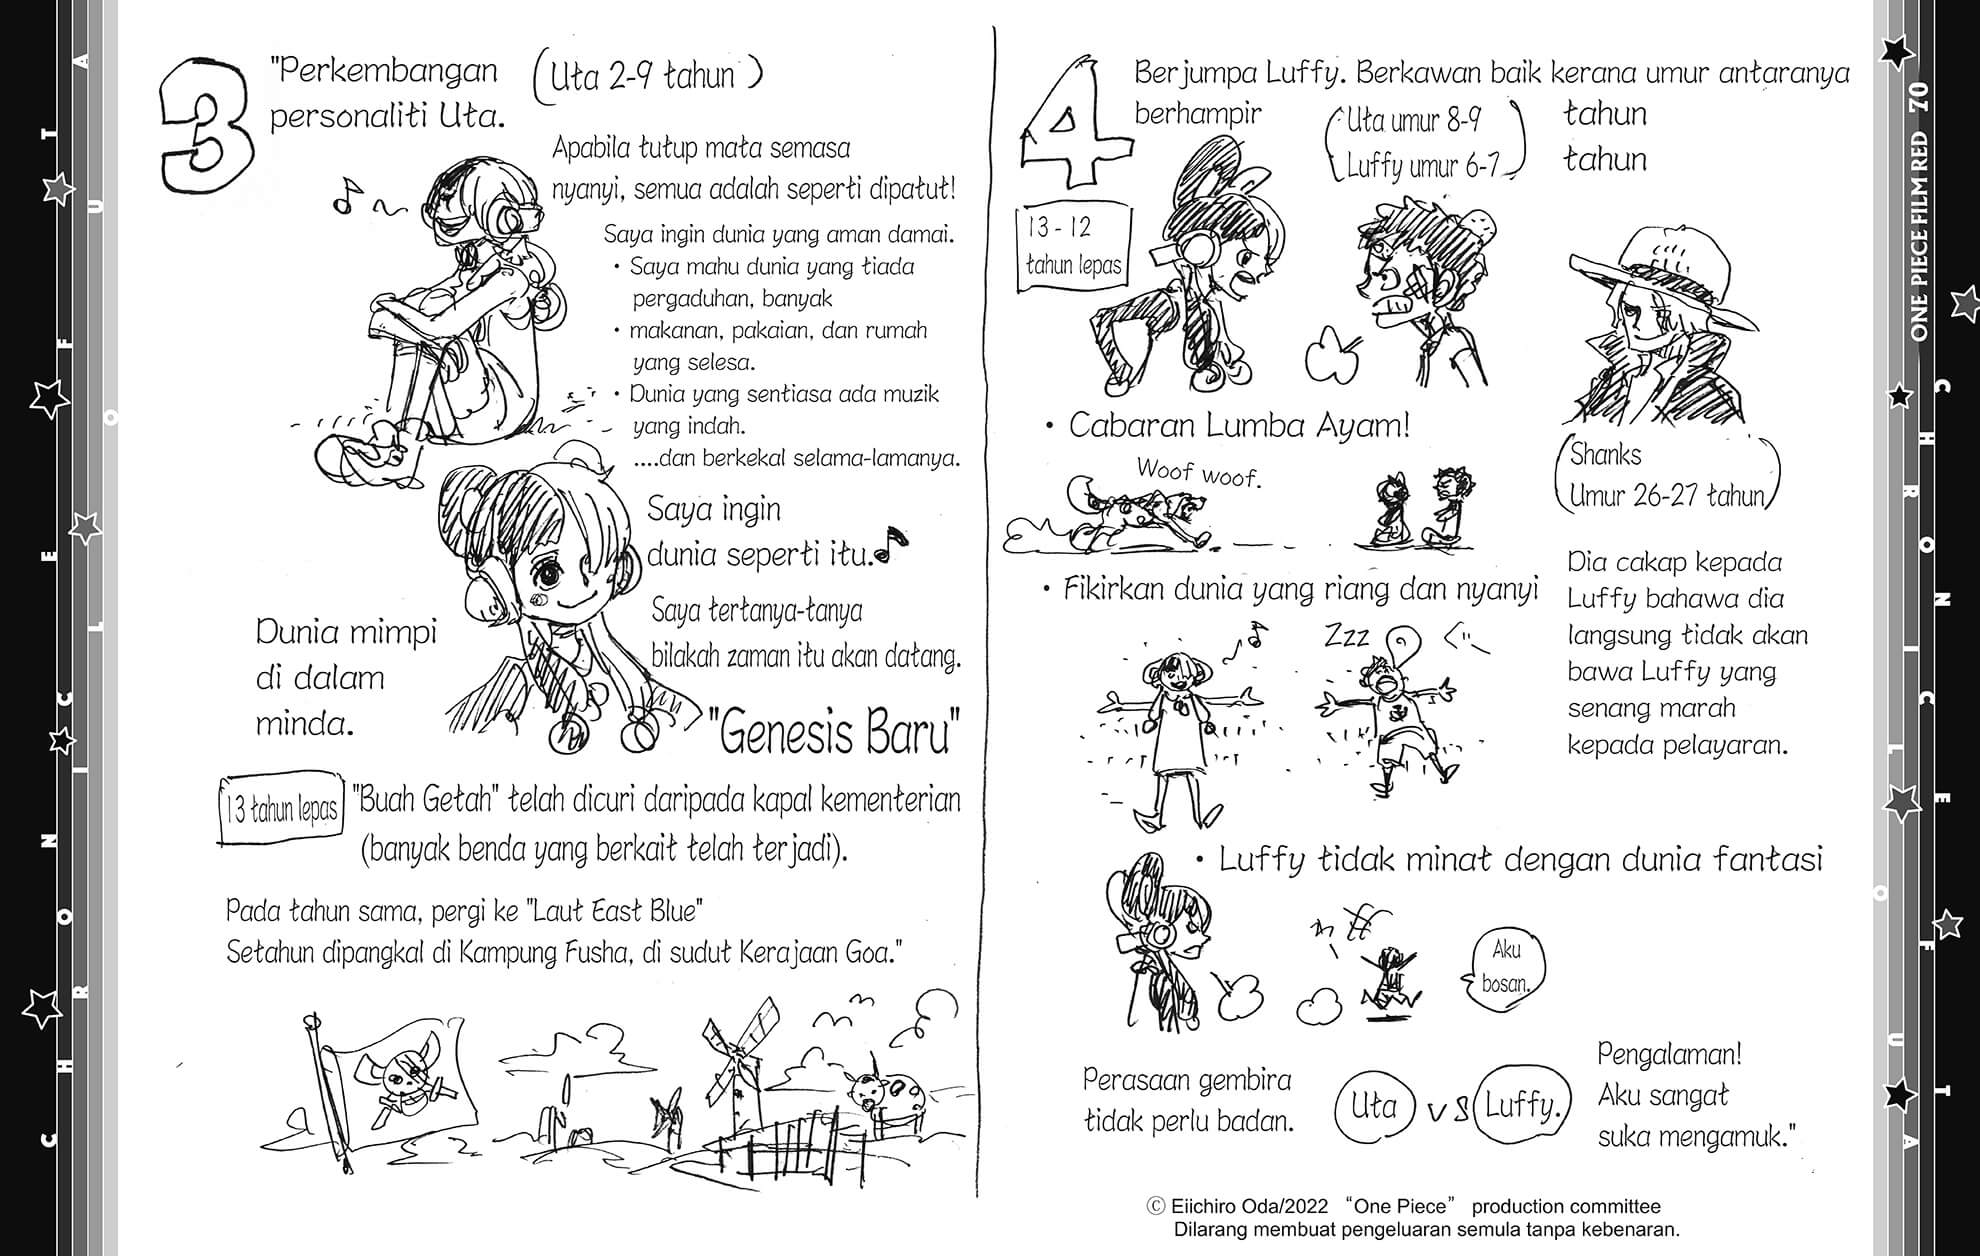 3
"Perkembangan
personaliti Uta.
(Uta 2-9 tahun )
Apabila tutup mata semasa
nyanyi, semua adalah seperti dipatut!
Saya ingin dunia yang aman damai.
• Saya mahu dunia yang tiada
pergaduhan, banyak
• makanan, pakaian, dan rumah
yang selesa.
• Dunia yang sentiasa ada muzik
yang indah.
....dan berkekal selama-lamanya.
Saya ingin
dunia seperti itu.
Saya tertanya-tanya
bilakah zaman itu akan datang.
Dunia mimpi
di dalam
minda.
"Genesis Baru"
13 tahun lepas
"Buah Getah" telah dicuri daripada kapal kementerian
(banyak benda yang berkait telah terjadi).
Pada tahun sama, pergi ke "Laut East Blue"
Setahun dipangkal di Kampung Fusha, di sudut Kerajaan Goa."
4
Berjumpa Luffy. Berkawan baik kerana umur antaranya
berhampir
(Uta umur 8-9
Luffy umur 6-7)
tahun
tahun
13 - 12
tahun lepas
• Cabaran Lumba Ayam!
Woof woof.
(Shanks
Umur 26-27 tahun)
• Fikirkan dunia yang riang dan nyanyi
Zzz
Dia cakap kepada
Luffy bahawa dia
langsung tidak akan
bawa Luffy yang
senang marah
kepada pelayaran.
• Luffy tidak minat dengan dunia fantasi
Aku
bosan.
Perasaan gembira
tidak perlu badan.
Uta vs Luffy.
Pengalaman!
Aku sangat
suka mengamuk."
© Eiichiro Oda/2022 “One Piece” production committee
Dilarang membuat pengeluaran semula tanpa kebenaran.
ONE PIECE FILM RED 70
CHRONICLE OF UTA
CHRONICLE OF UTA